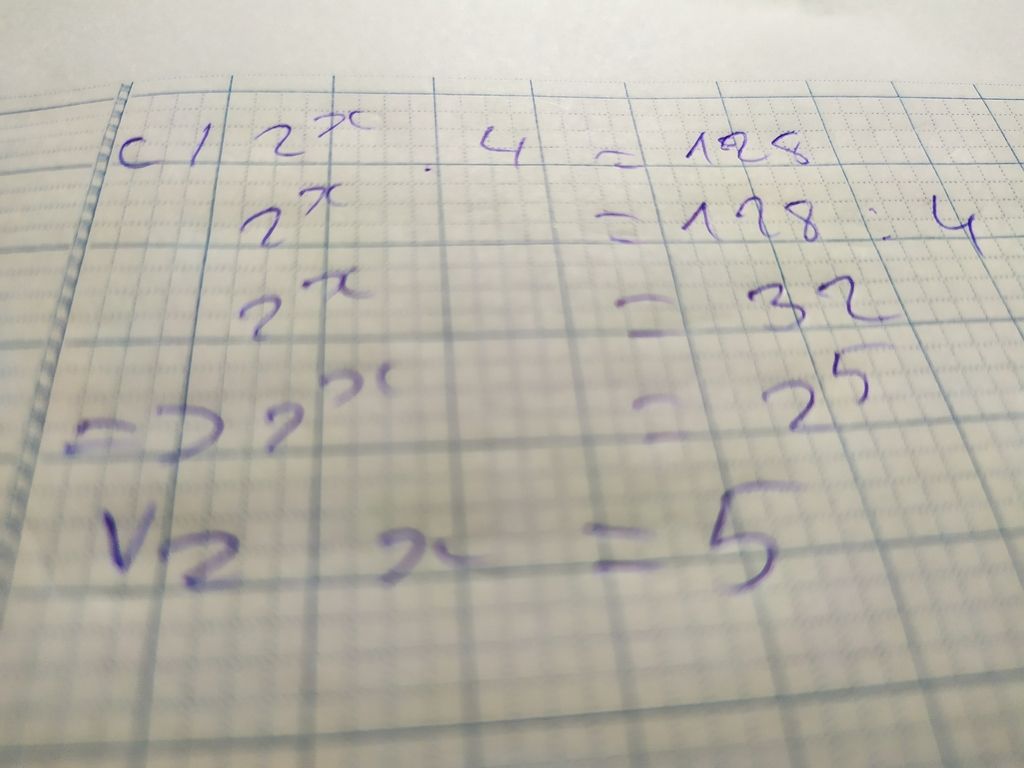 c / 2^x . 4 = 128
2^x = 128 : 4
2^x = 32
=> 2^x = 2^5
Vz x = 5